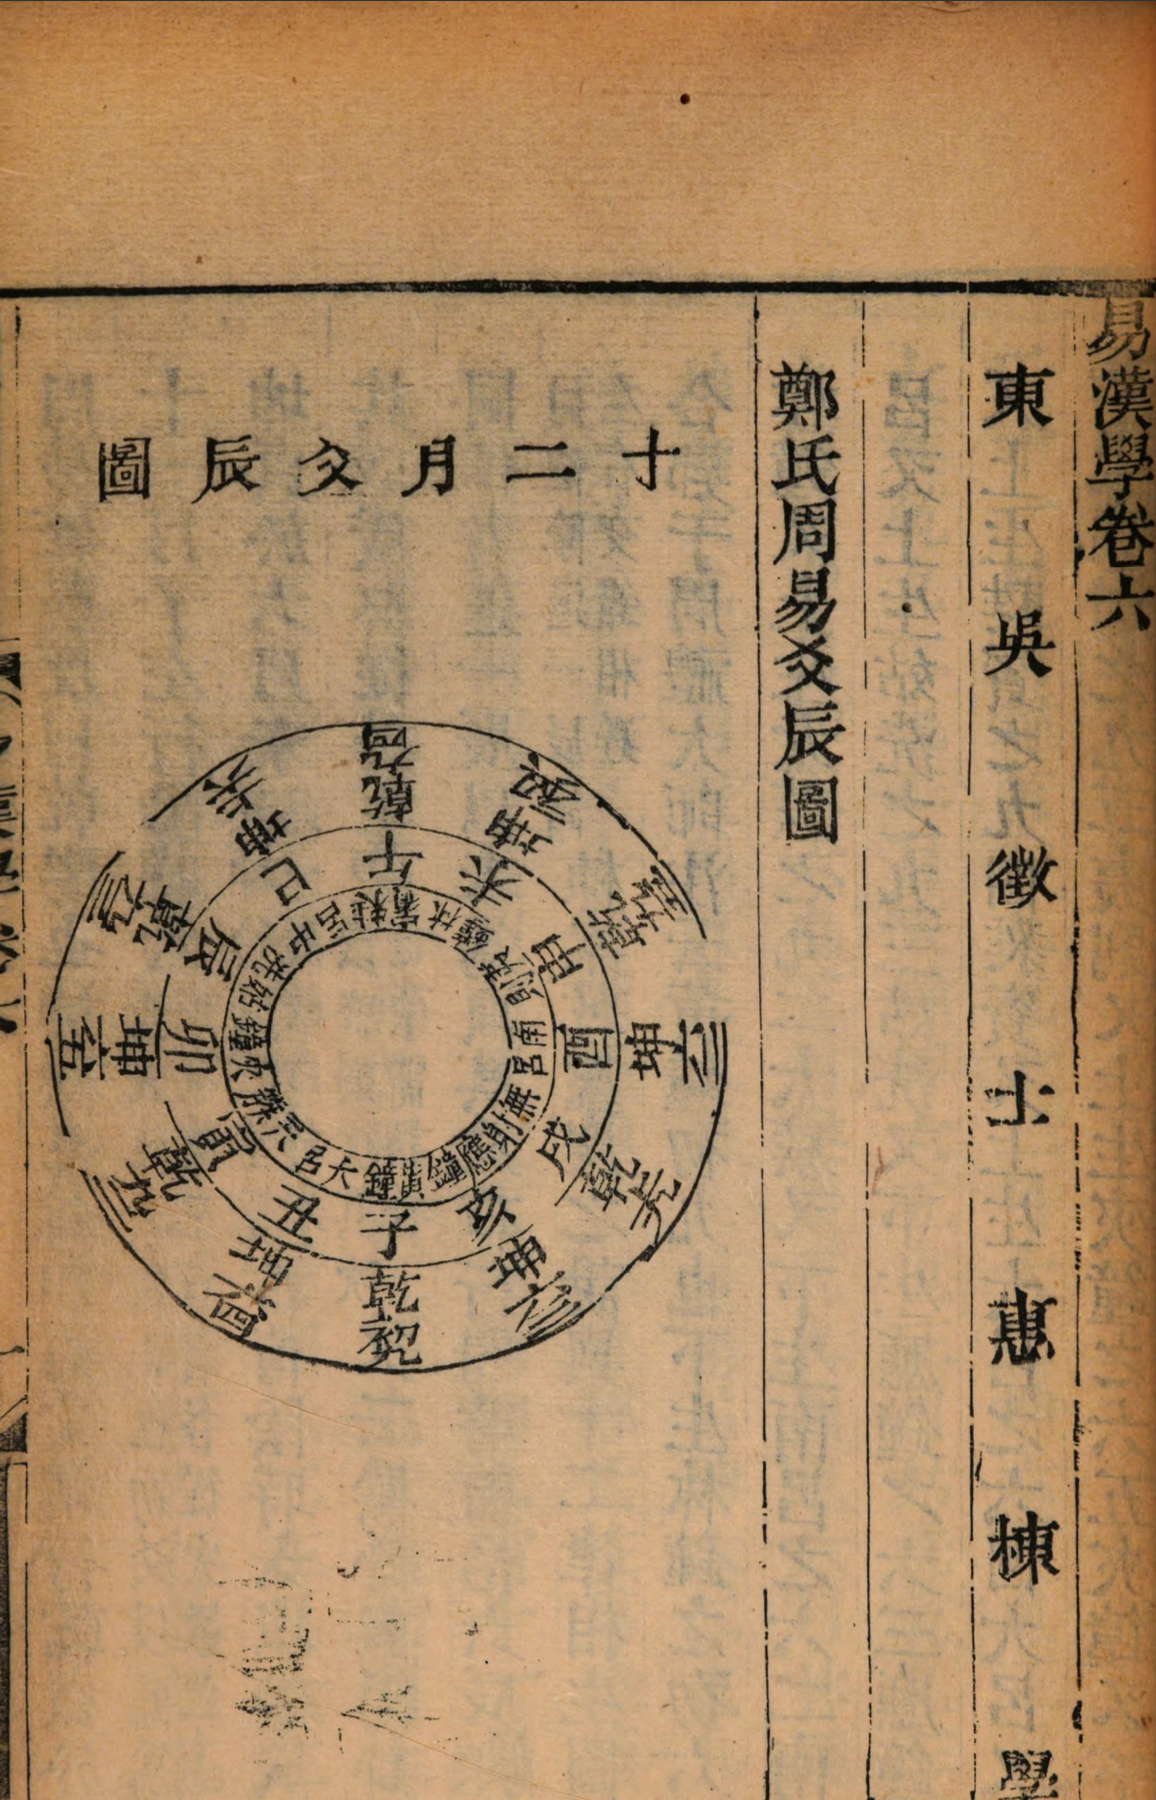 易漢學卷六
東吳徵士惠棟學
鄭氏周易爻辰圖
十二月爻辰圖
子 乾初九 黃鐘
丑 坤六四 大呂
寅 乾九二
卯 坤六五 夾鐘
辰 乾九三 姑洗
巳 坤上六 中呂
午 乾九四 蕤賓
未 坤初六 林鐘
申 乾九五 夷則
酉 坤六二 南呂
戌 乾上九 無射
亥 坤六三 應鐘